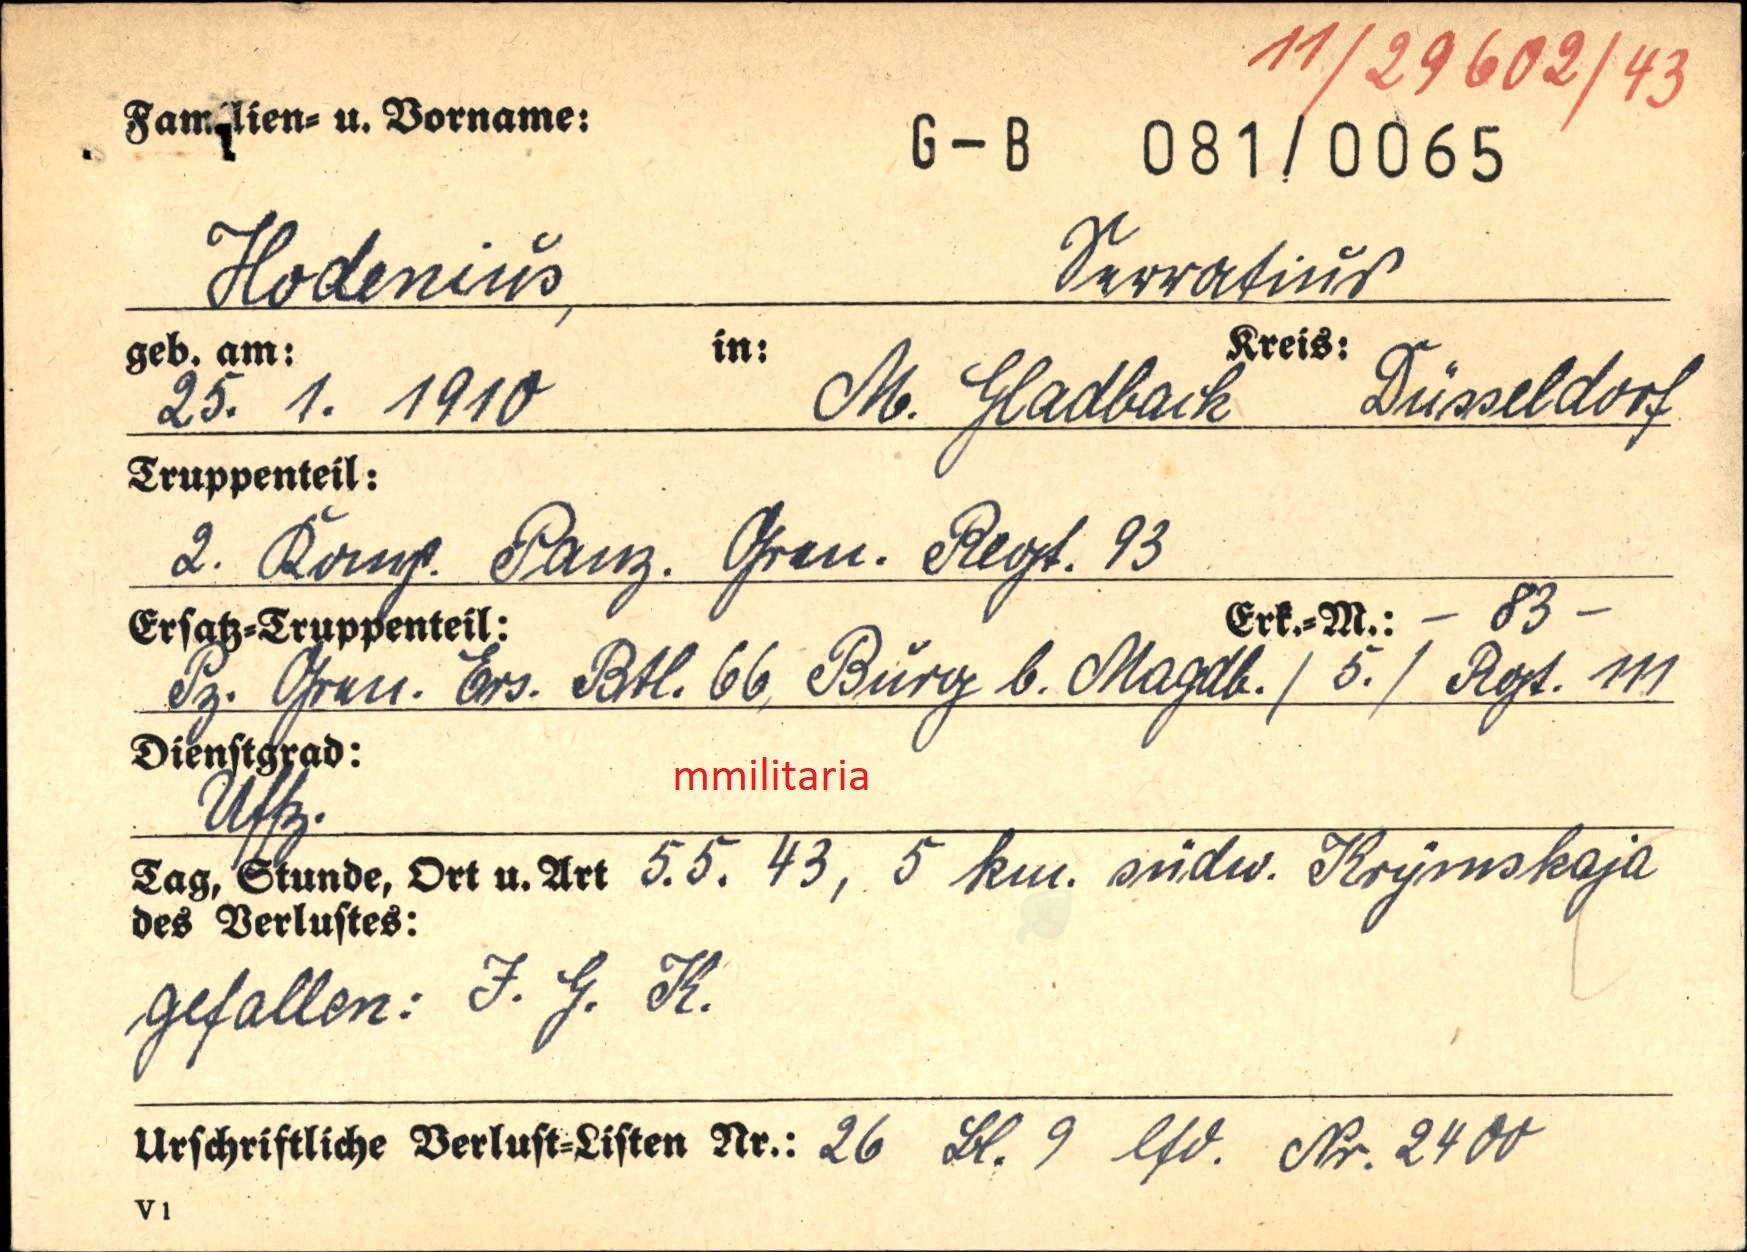 11/29602/43
Familien- u. Vorname:
G-B 081/0065
Hodenius, Serratius
geb. am: in: Kreis:
25. 1. 1910 M. Gladback Düsseldorf
Truppenteil:
2. Komp. Panz. Gren. Regt. 93
Ersatz-Truppenteil: Erk.-M.: - 83 -
Pz. Gren. Ers. Btl. 66, Burg b. Magdb. / 5. / Rgt. 111
Dienstgrad:
Uffz.
mmilitaria
Tag, Stunde, Ort u. Art 5.5. 43, 5 km. südw. Krymskaja
des Verlustes:
gefallen: I. G. K.
Urschriftliche Verlust-Listen Nr.: 26 Bl. 9 lfd. Nr. 2400
V 1